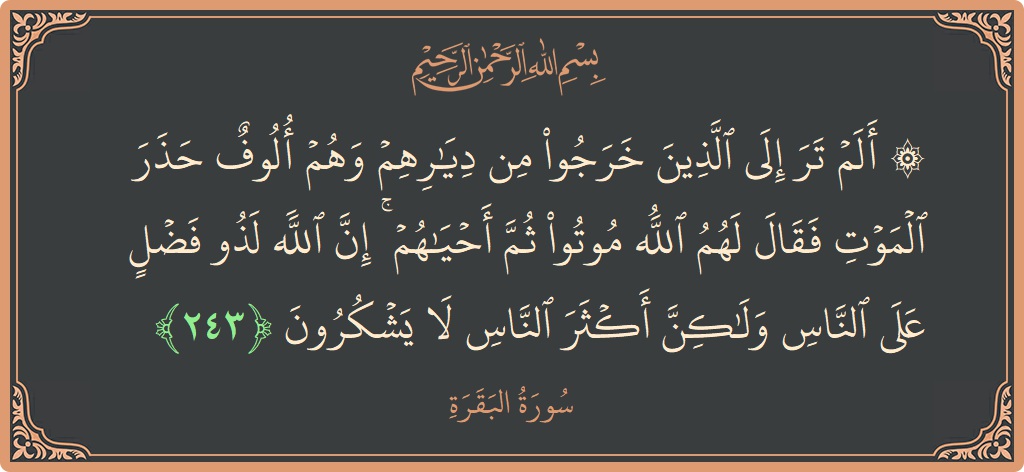 بِسْمِ اللَّهِ الرَّحْمَٰنِ الرَّحِيمِ
۞ أَلَمْ تَرَ إِلَى ٱلَّذِينَ خَرَجُوا۟ مِن دِيَـٰرِهِمْ وَهُمْ أُلُوفٌ حَذَرَ
ٱلْمَوْتِ فَقَالَ لَهُمُ ٱللَّهُ مُوتُوا۟ ثُمَّ أَحْيَـٰهُمْ ۚ إِنَّ ٱللَّهَ لَذُو فَضْلٍ
عَلَى ٱلنَّاسِ وَلَـٰكِنَّ أَكْثَرَ ٱلنَّاسِ لَا يَشْكُرُونَ ﴿٢٤٣﴾
سُورَةُ البَقَرَةِ